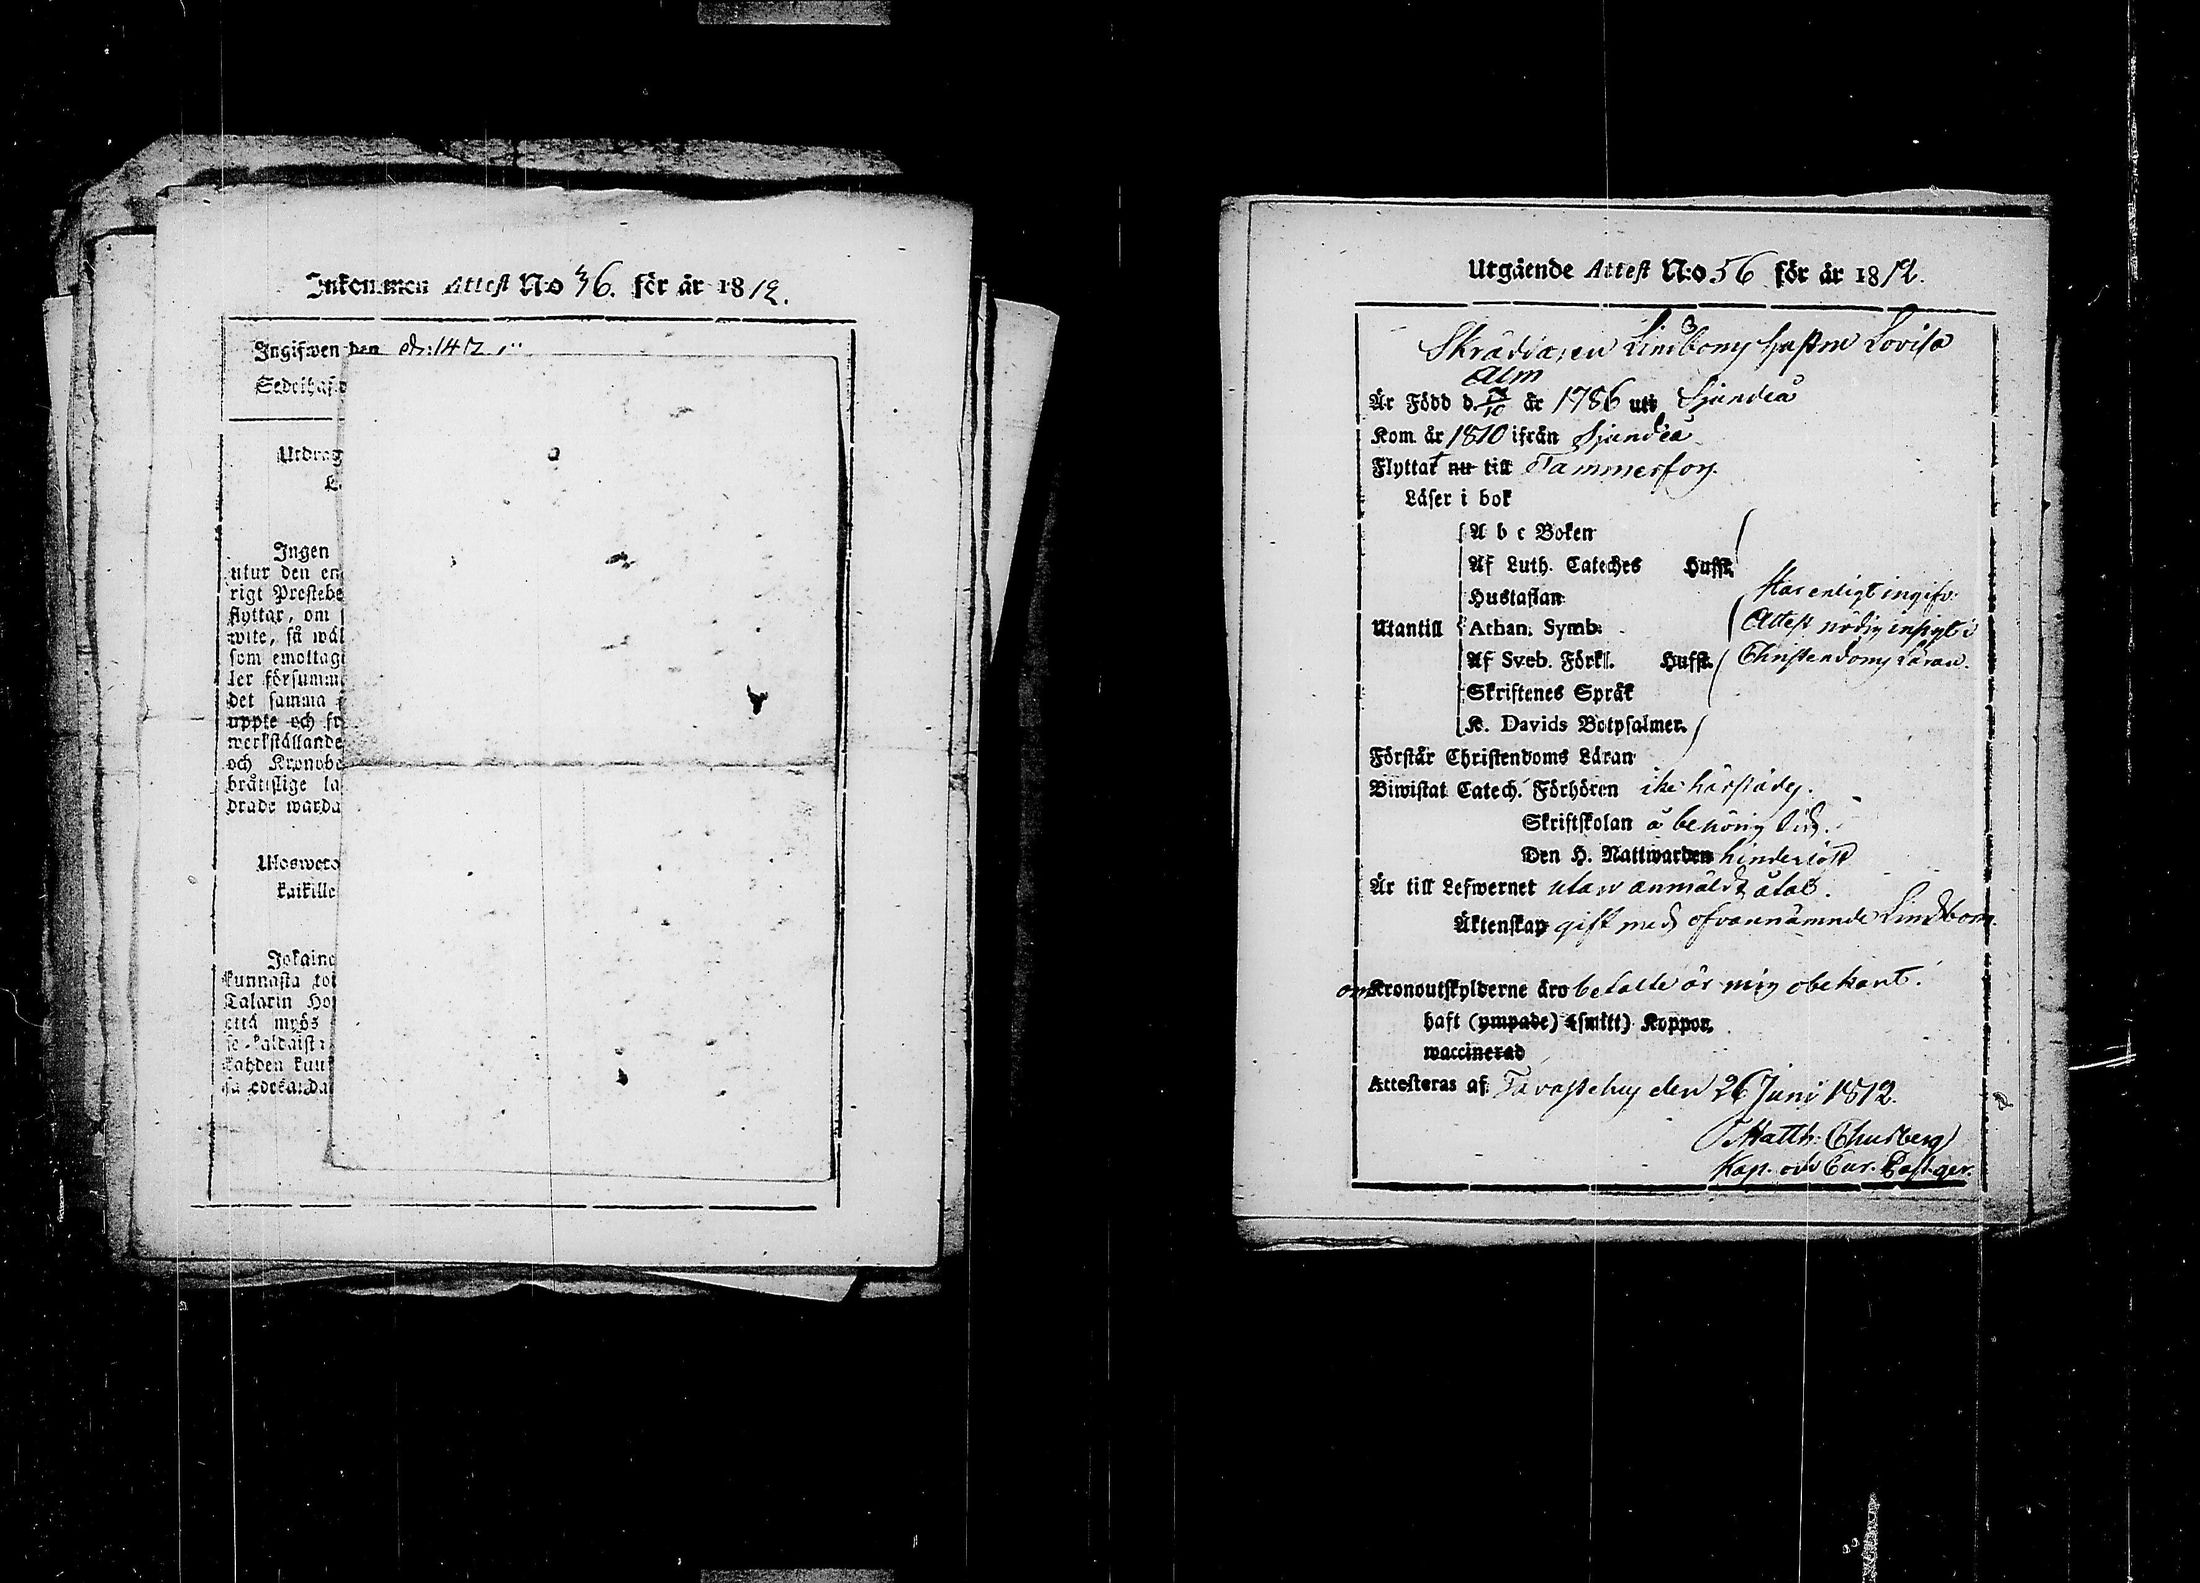 Inkommen Attest N:o 36. för år 1812.
Ingifwen den
Sedelhafw
Utdrag
Ingen
utur den en
rigt Prestebe
flyttar, om
wite, så wäl
som emottag
ler försumm
det samma
uppte och fr
werkställande
och Kronobe
brättslige la
drade warda
Ulosweto
kaikille
Jokaine
kunnasta toi
Talarin Ho
että myös
kahden kuu
Utgående Attest N:o 56 för år 1812.
Skräddaren Lindboms hustru Lovisa
Alm
Är Född d. år 1786 uti Sjundeå
Kom år 1810 ifrån Sjundeå
Flyttat nu till Tammerfors.
Läser i bok
A b c Boken
Af Luth. Cateches Hufst.
Hustaflan
Har enligt ingifv.
Utantill Athan. Symb.
Attest nödig insigt i
Af Sveb. Förkl. Hufst. Christendoms Läran.
Skriftenes Språk
K. Davids Botpsalmer.
Förstår Christendoms Läran
Biwistat Catech. Förhören ike härstädes.
Skriftskolan å behörig tid.
Den H. Nattwarden hinderlöst
Är till Lefwernet utan anmäldt åtal.
Äktenskap gift med ofvannämnde Lindbom.
om Kronoutskylderne äro betalte är mig obekant.
haft (ympade) (smitt) Koppor.
waccinerad
Attesteras af Tavastehus den 26 Juni 1812.
Matth. Chydberg
Kap. och Cur. Past. ger.